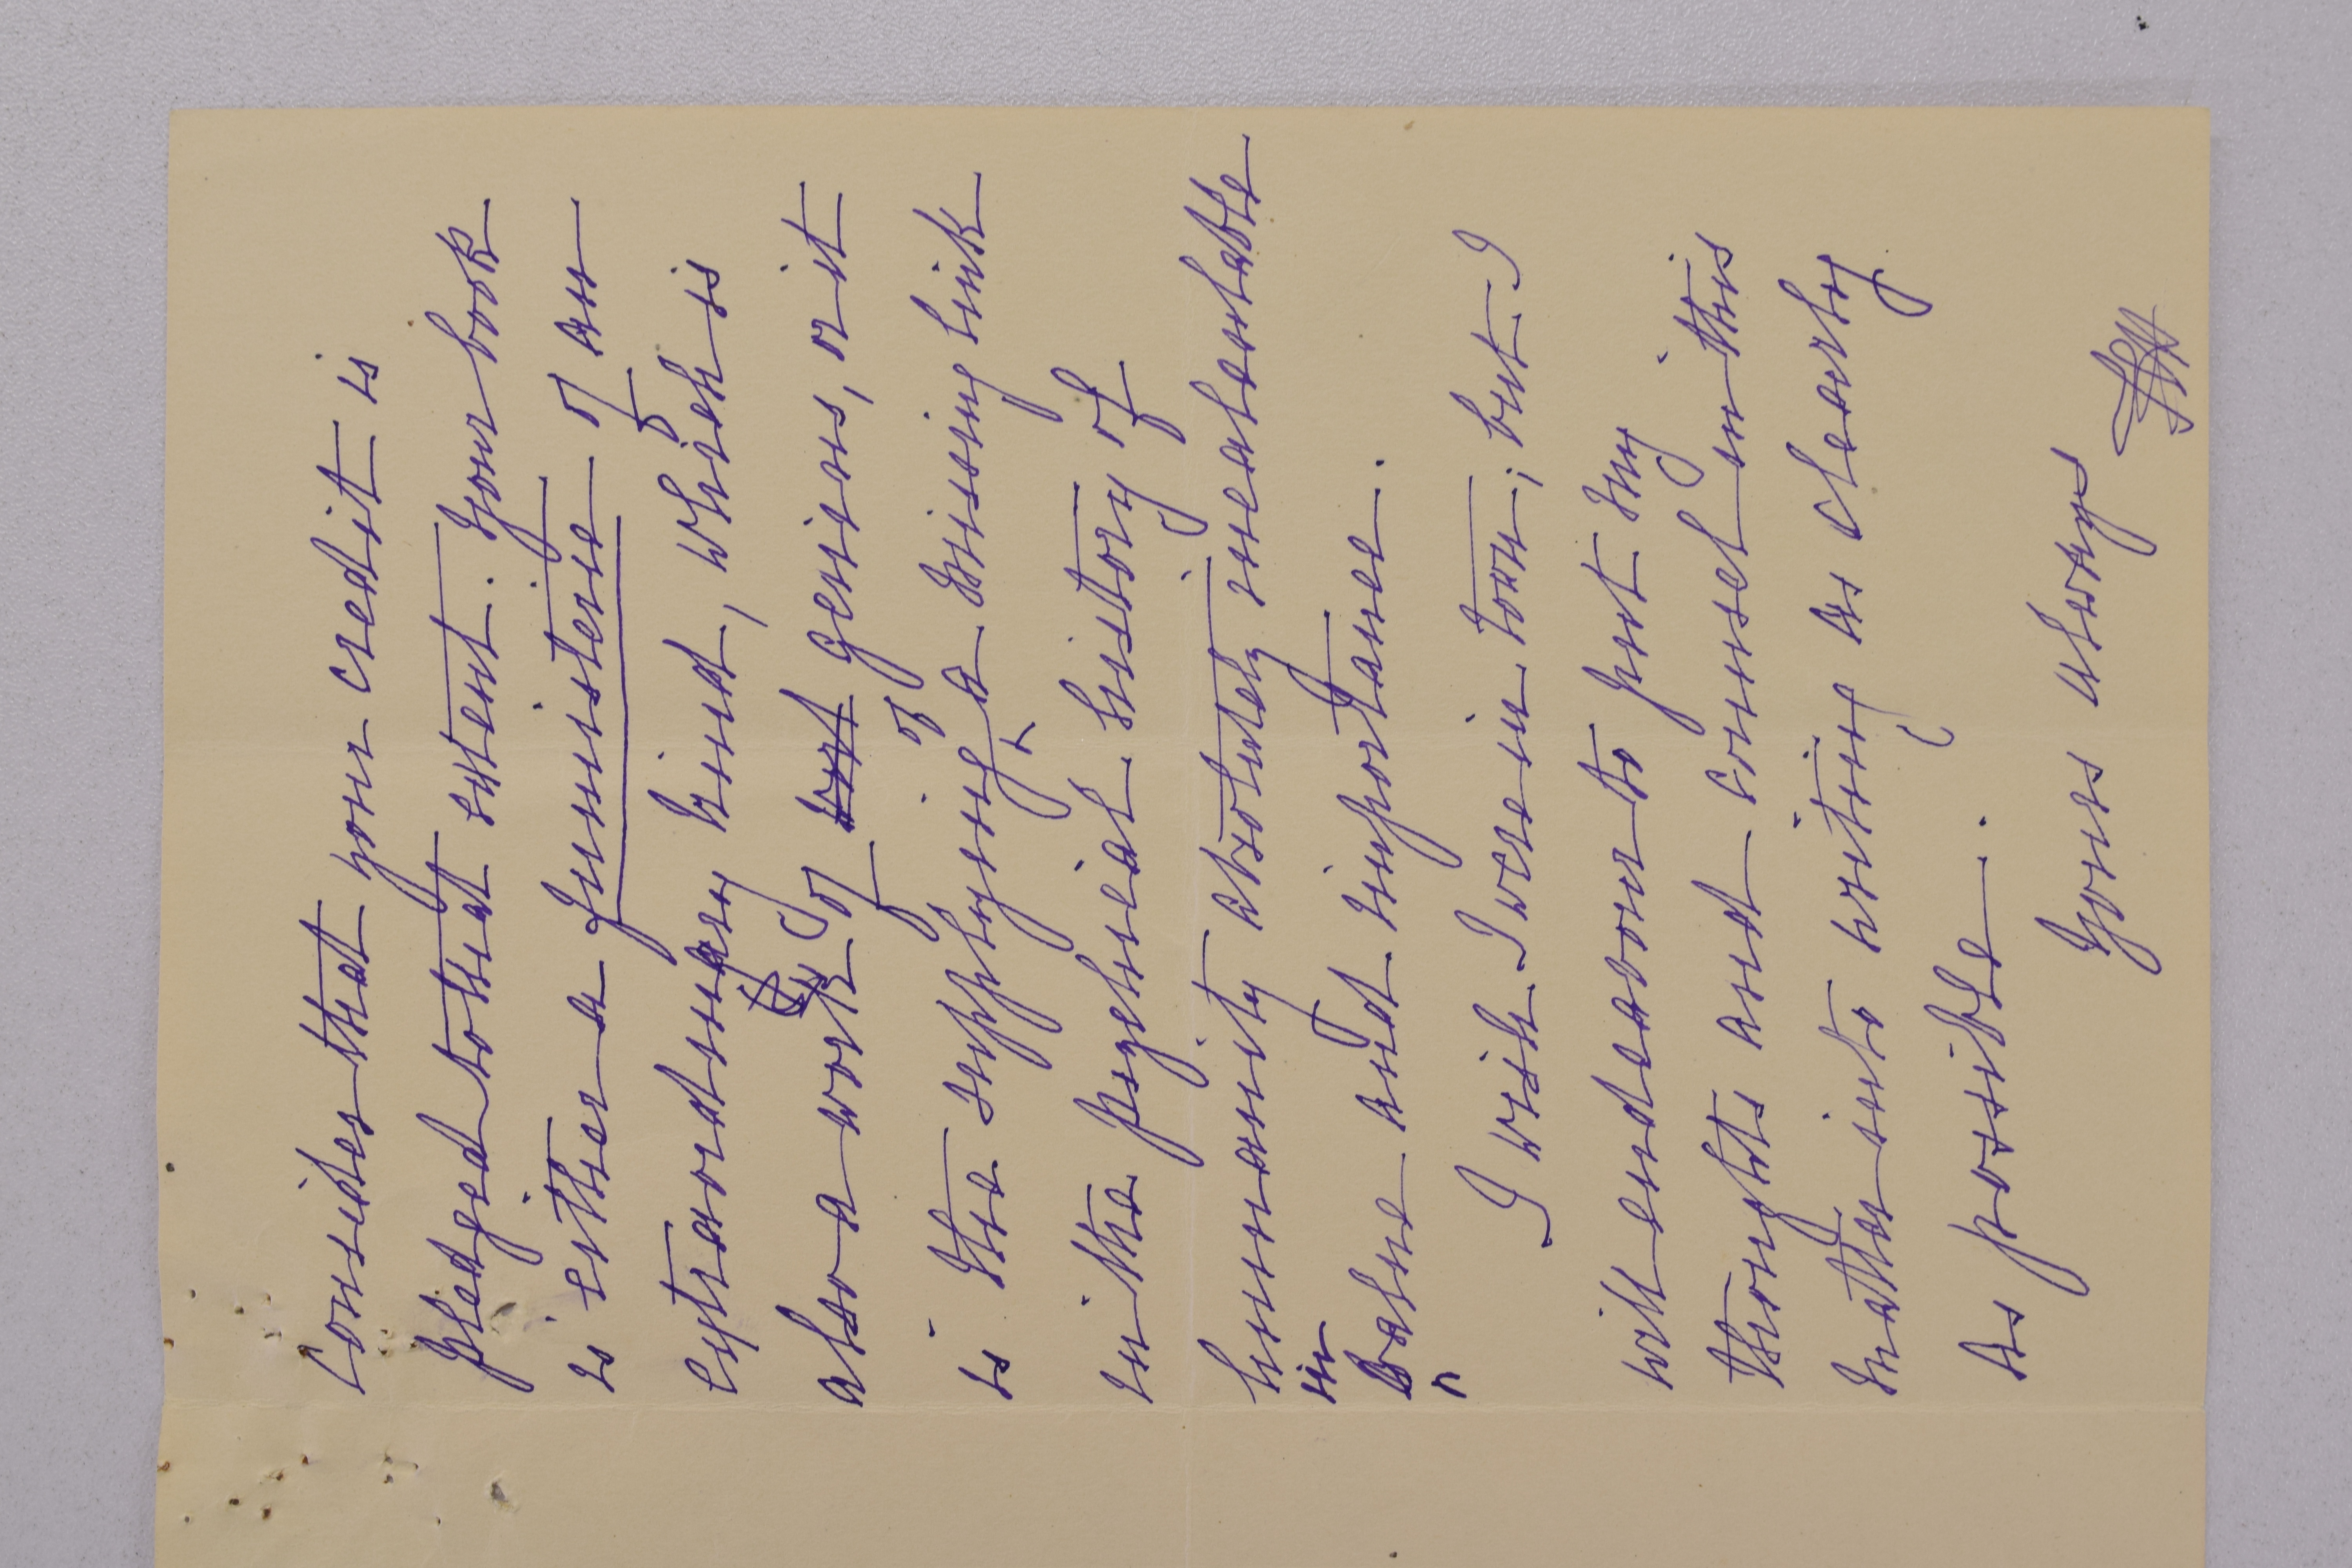 consider that your credit is
pledged to that extent. Your book
is either a fumisterie of an
extraordinary kind, which is
also a work of genious, or it
is the supplying of a missing link
in the psychical history of
humanity absolutely incalculable
in value and importance.
I wish I were in town; but I
will endeavour to put my
thoughts and counsel in this
matter into writing as clearly
as possible.
Yours always